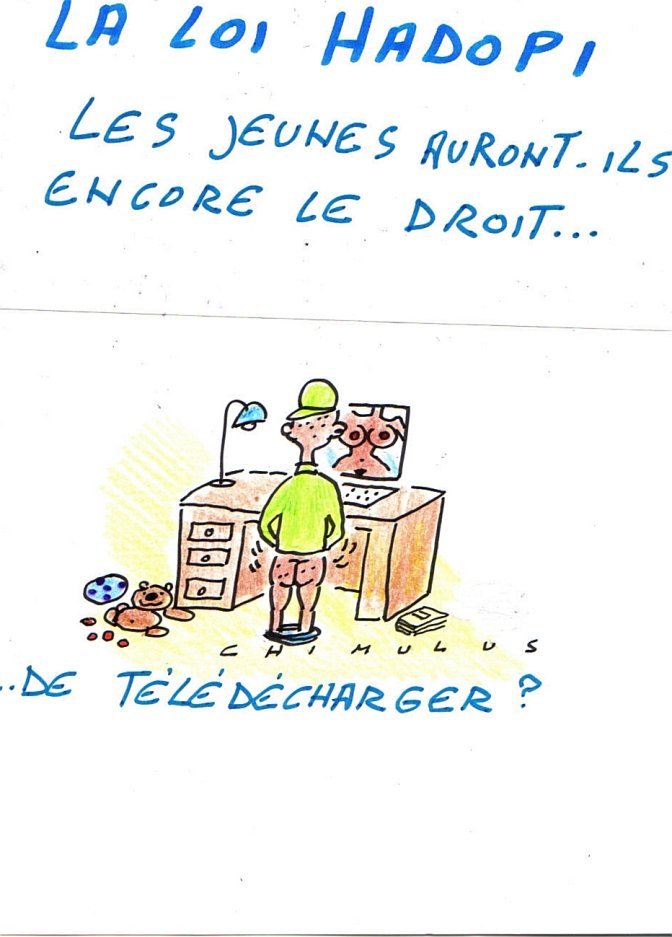 LA LOI HADOPI
LES JEUNES AURONT-ILS
ENCORE LE DROIT...
CHIMULUS
..DE TÉLÉDÉCHARGER ?